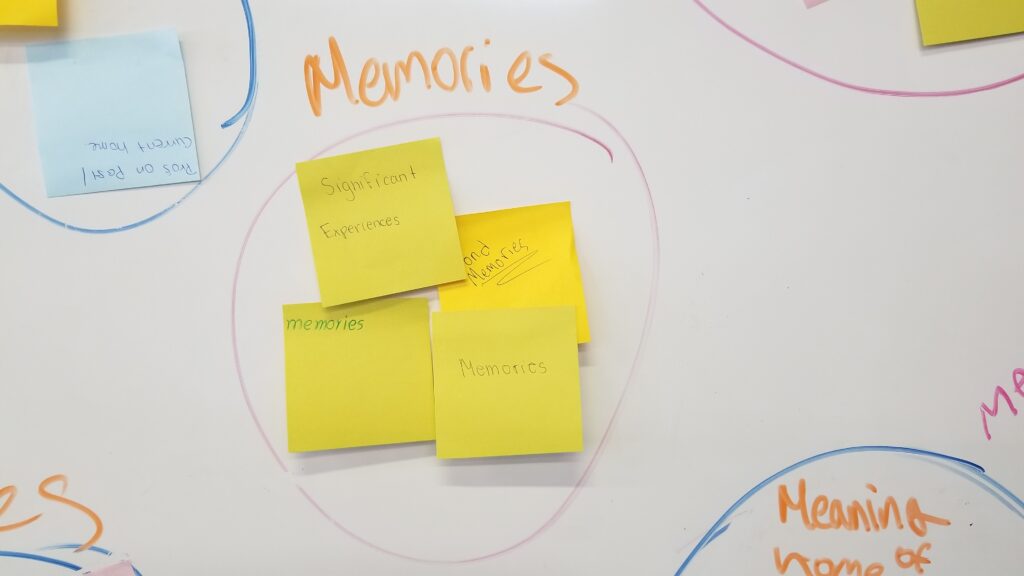 Memories
Significant
Experiences
ond
Memories
memories
Memories
Pros on Past/
Current home
Meaning
of
home